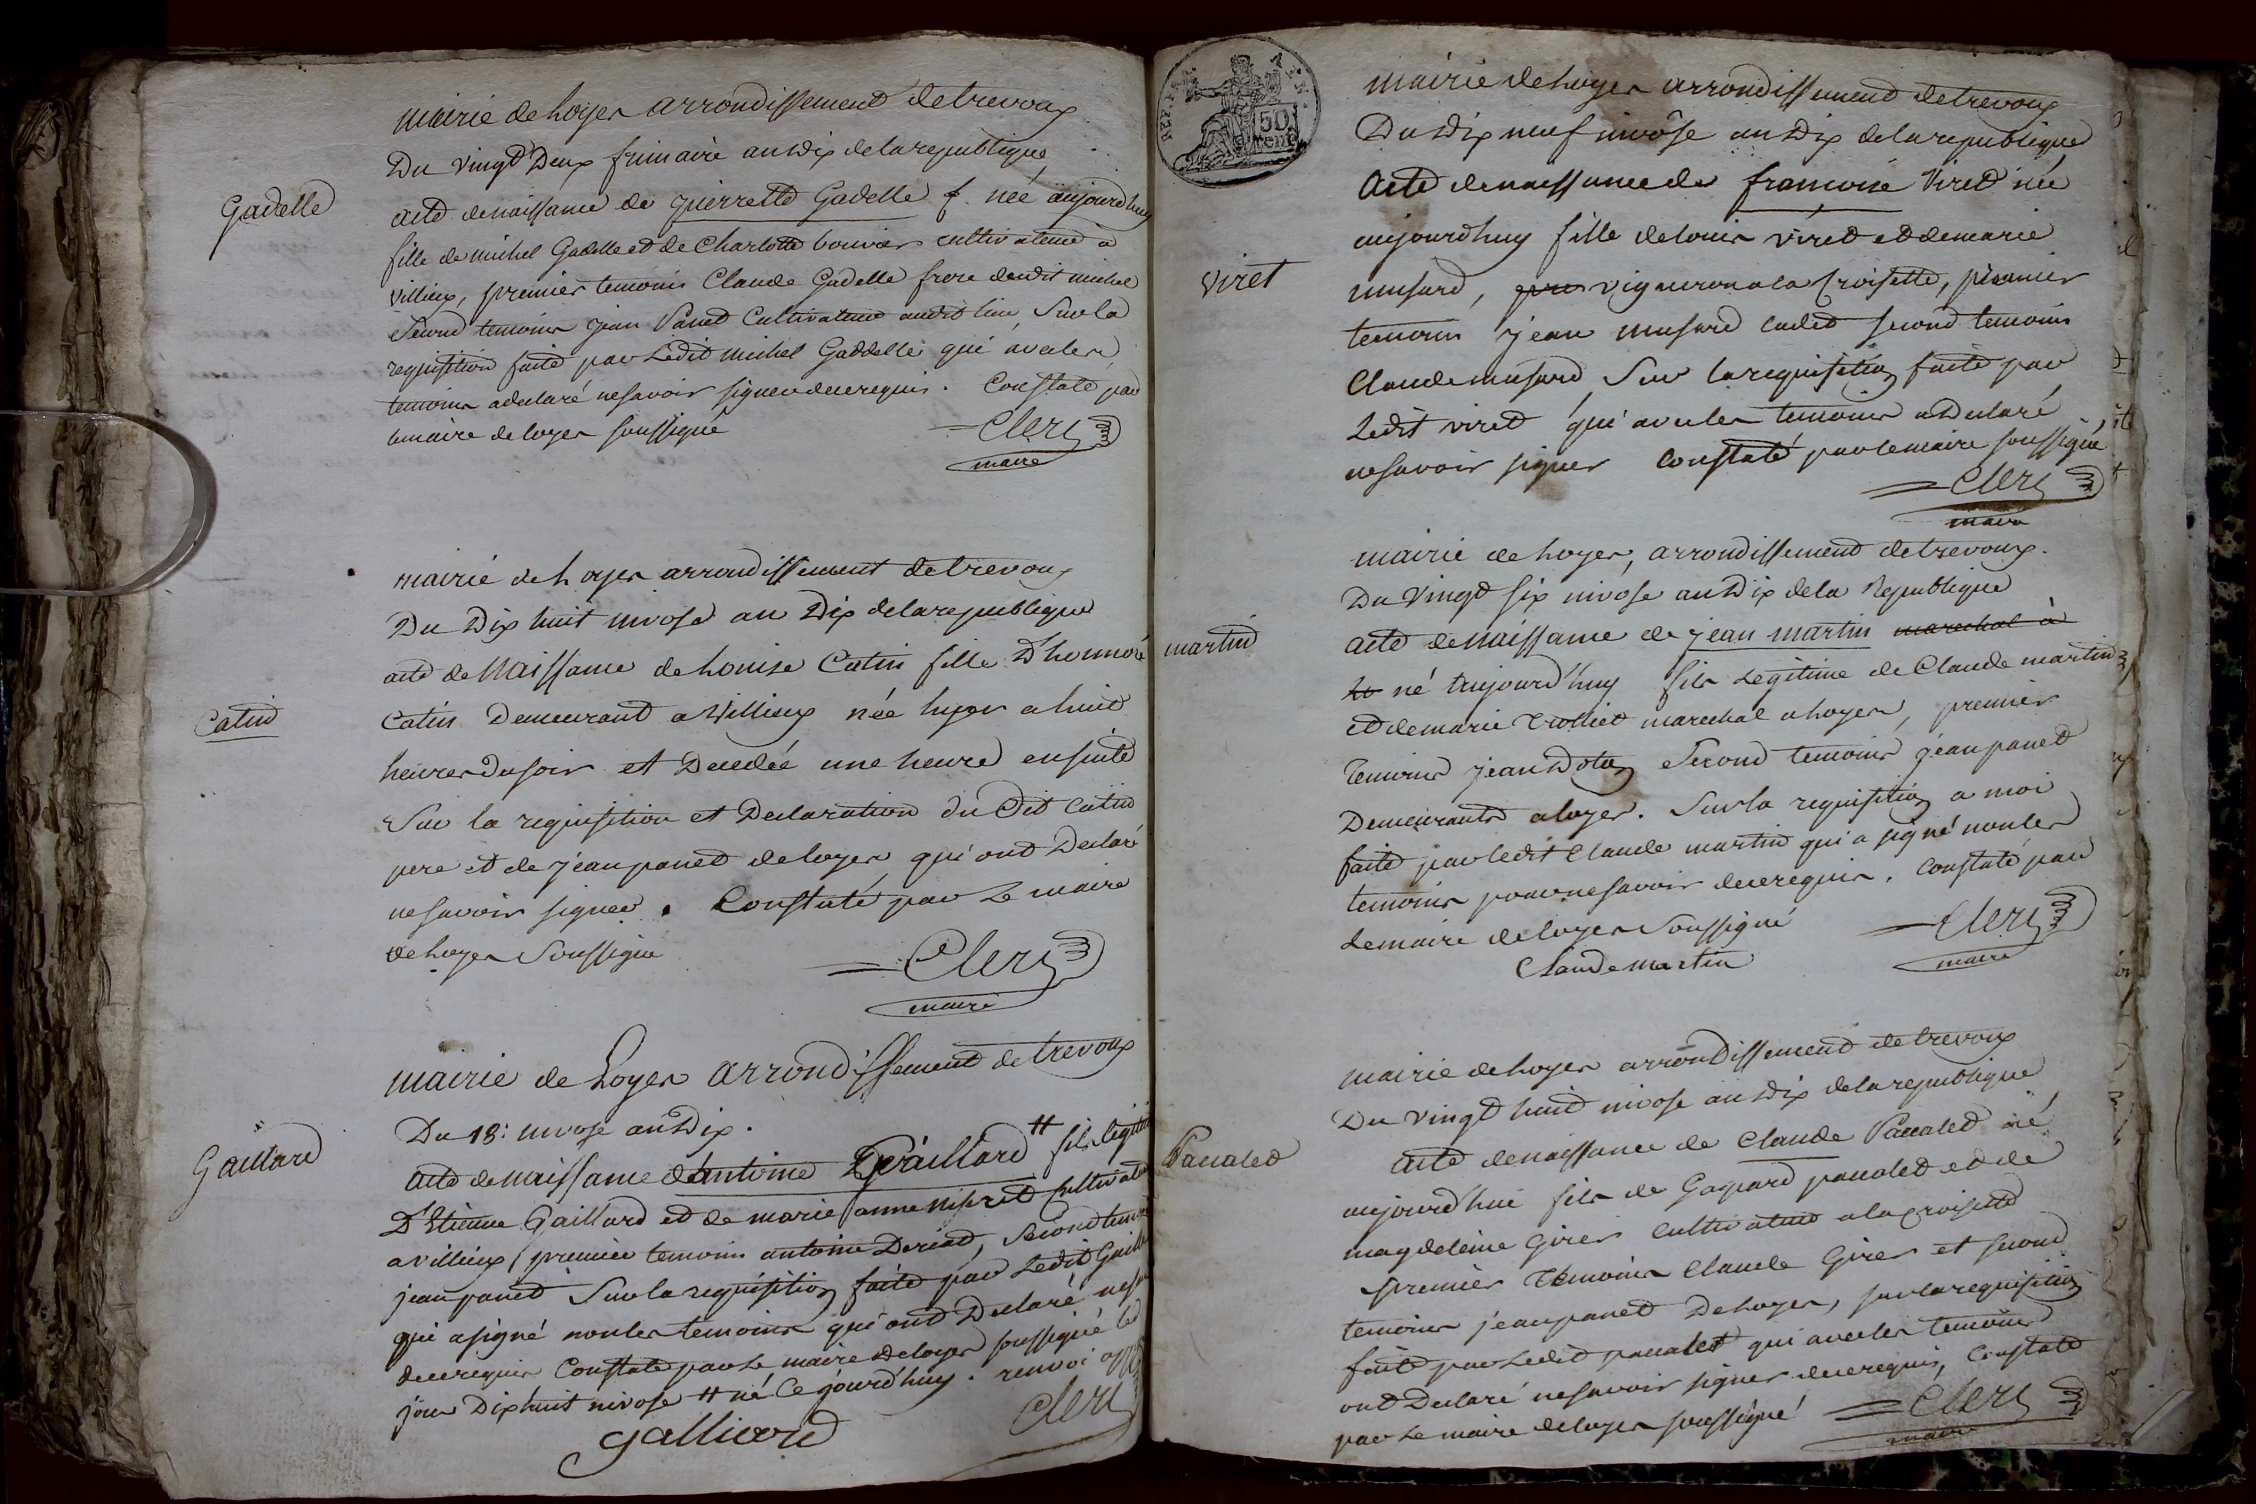 mairie de Loyes arrondissement de trevoux
Du vingt Deux frimaire an dix de la republique
Gadelle
acte de naissance de pierrette Gadelle f. née aujourdhuy
fille de michel Gadelle et de Charlotte bouvier cultivateur a
villieux, premier temoin Claude Gadelle frere dudit michel
Second temoins jean Panet Cultivateur audit lieu, Sur la
requisition faite par Ledit michel Gaddelle qui avec les
temoins a declaré ne savoir signer de ce requis. Constaté par
le maire de loyes soussigné
Clerc
maire
mairie de Loyes arrondissement de trevoux
Du Dix huit nivose an Dix de la republique
acte de Naissance de Louise Catin fille D'honnoré
Catin
Catin Demeurant a villieux née hyer a huit
heures du soir et Decedée une heure ensuite
Sur la requisition et Declaration du Dit Catin
pere et de jean panet de loyes qui ont Declaré
ne savoir signer. Constaté par Le maire
de Loyes Soussigné
Clerc
maire
mairie de Loyes arrondissement de trevoux
Du 18: nivose an Dix.
Gaillard
acte de naissance d'antoine Gaillard # fils legitime
D'Etienne Gaillard et de marie anne cultivateur
a villieux, premier temoin antoine Deriat, Second temoin
jean panet Sur la requisition faite par Ledit Gaillard
qui a signé non les temoins qui ont Declaré ne savoir
de ce requis Constaté par Le maire de loyes soussigné led
jour Dix huit nivose # né Ce jourd'huy. renvoi app
Clerc
gallierd
AEP. FRA. REN.
50 cent
mairie de Loyes arrondissement de trevoux
Du Dix neuf nivôse an Dix de la republique
acte de naissance de francoise Viret née
aujourdhuy fille de louis viret et de marie
Viret
musard, vigneron a la Croisette, premier
temoins jean musard cadet second temoins
Claude musard, Sur la requisition faite par
Ledit viret qui avec les temoins a Declaré
ne savoir signer Constaté par le maire soussigné
Clerc
maire
mairie de Loyes, arrondissement de trevoux.
Du Vingt six nivose an Dix de la Republique
martin
acte de Naissance de jean martin marechal à
Lo né aujourd'huy fils Legitime de Claude martin
et de marie Trolliet marechal a Loyes, premier
Temoins jean Second temoins jean panet
Demeurants a loyes. Sur la requisition a moi
faite par ledit Claude martin qui a signé non les
temoins pour ne savoir de ce requis. Constaté par
Le maire de loyes Soussigné
Clerc
Claude martin
maire
mairie de Loyes arrondissement de trevoux
Du vingt huit nivose an Dix de la republique
Panalet
acte de naissance de Claude Panalet né
aujourd'hui fils de Gaspard panalet et de
magdeleine Girer cultivateur a la Croisette
premier Temoins Claude Girer et second
temoins jean panet De Loyes, sur la requisition
faite par Ledit panalet qui avec les temoins
ont Declaré ne savoir signer de ce requis, Constaté
par Le maire de loyes soussigné
Clerc
maire